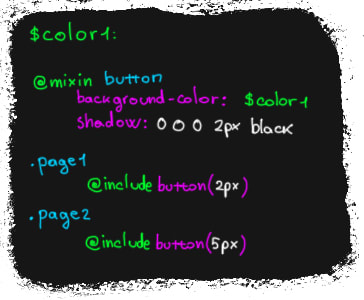 $color1:
@mixin button
background-color: $color1
shadow: 0 0 0 2px black
.page1
@include button(2px)
.page2
@include button(5px)